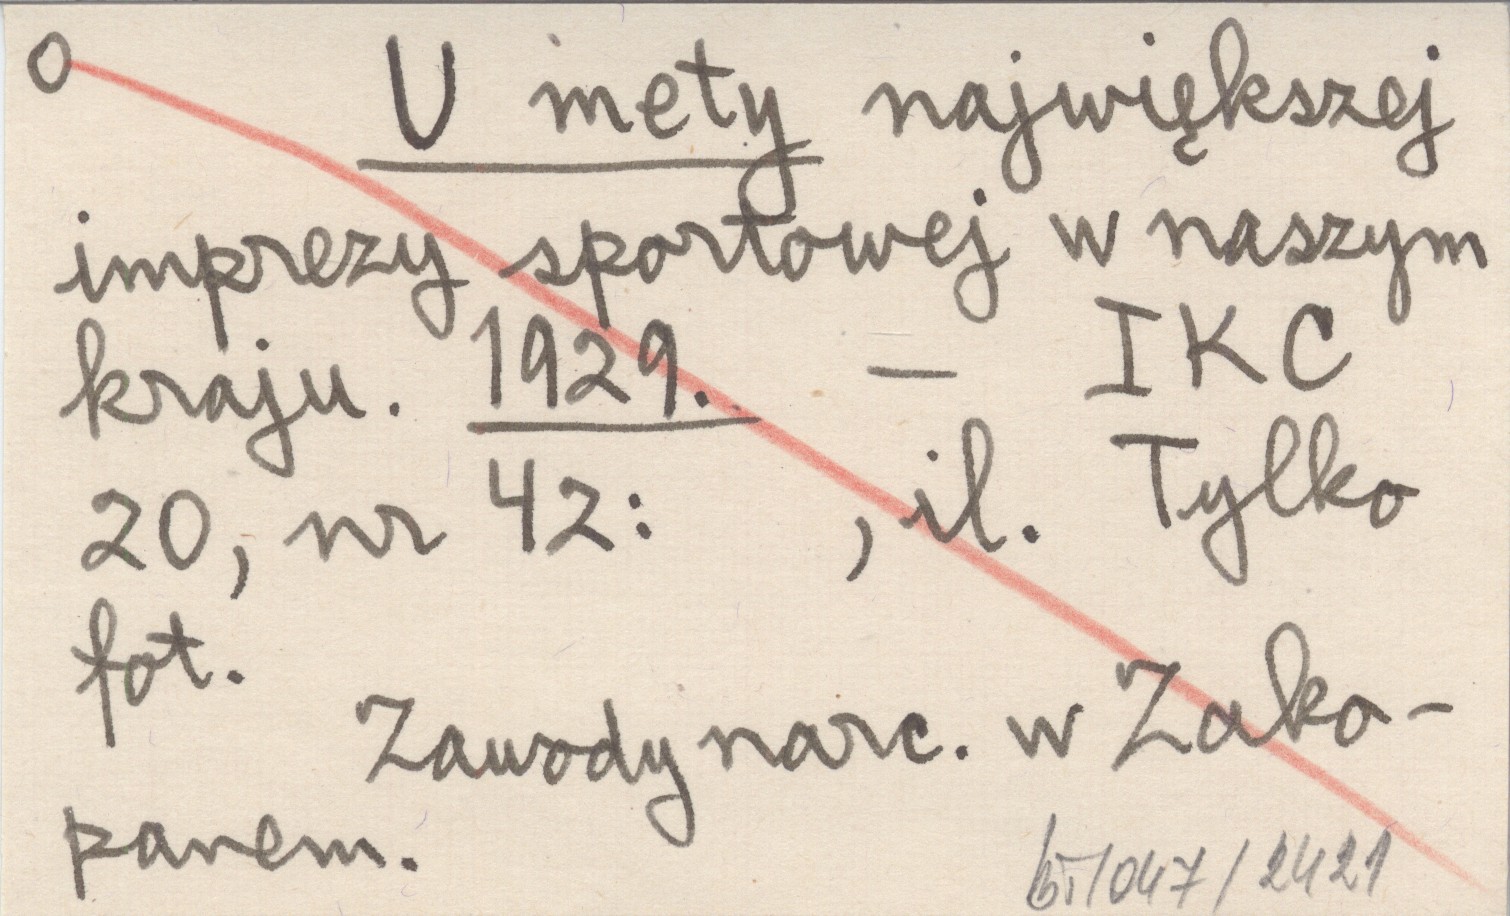 O U mety największej
imprezy sportowej w naszym
kraju. 1929. — IKC
20, nr 42: , il. Tylko
fot.
Zawody narc. w Zako-
panem.
/047/2421